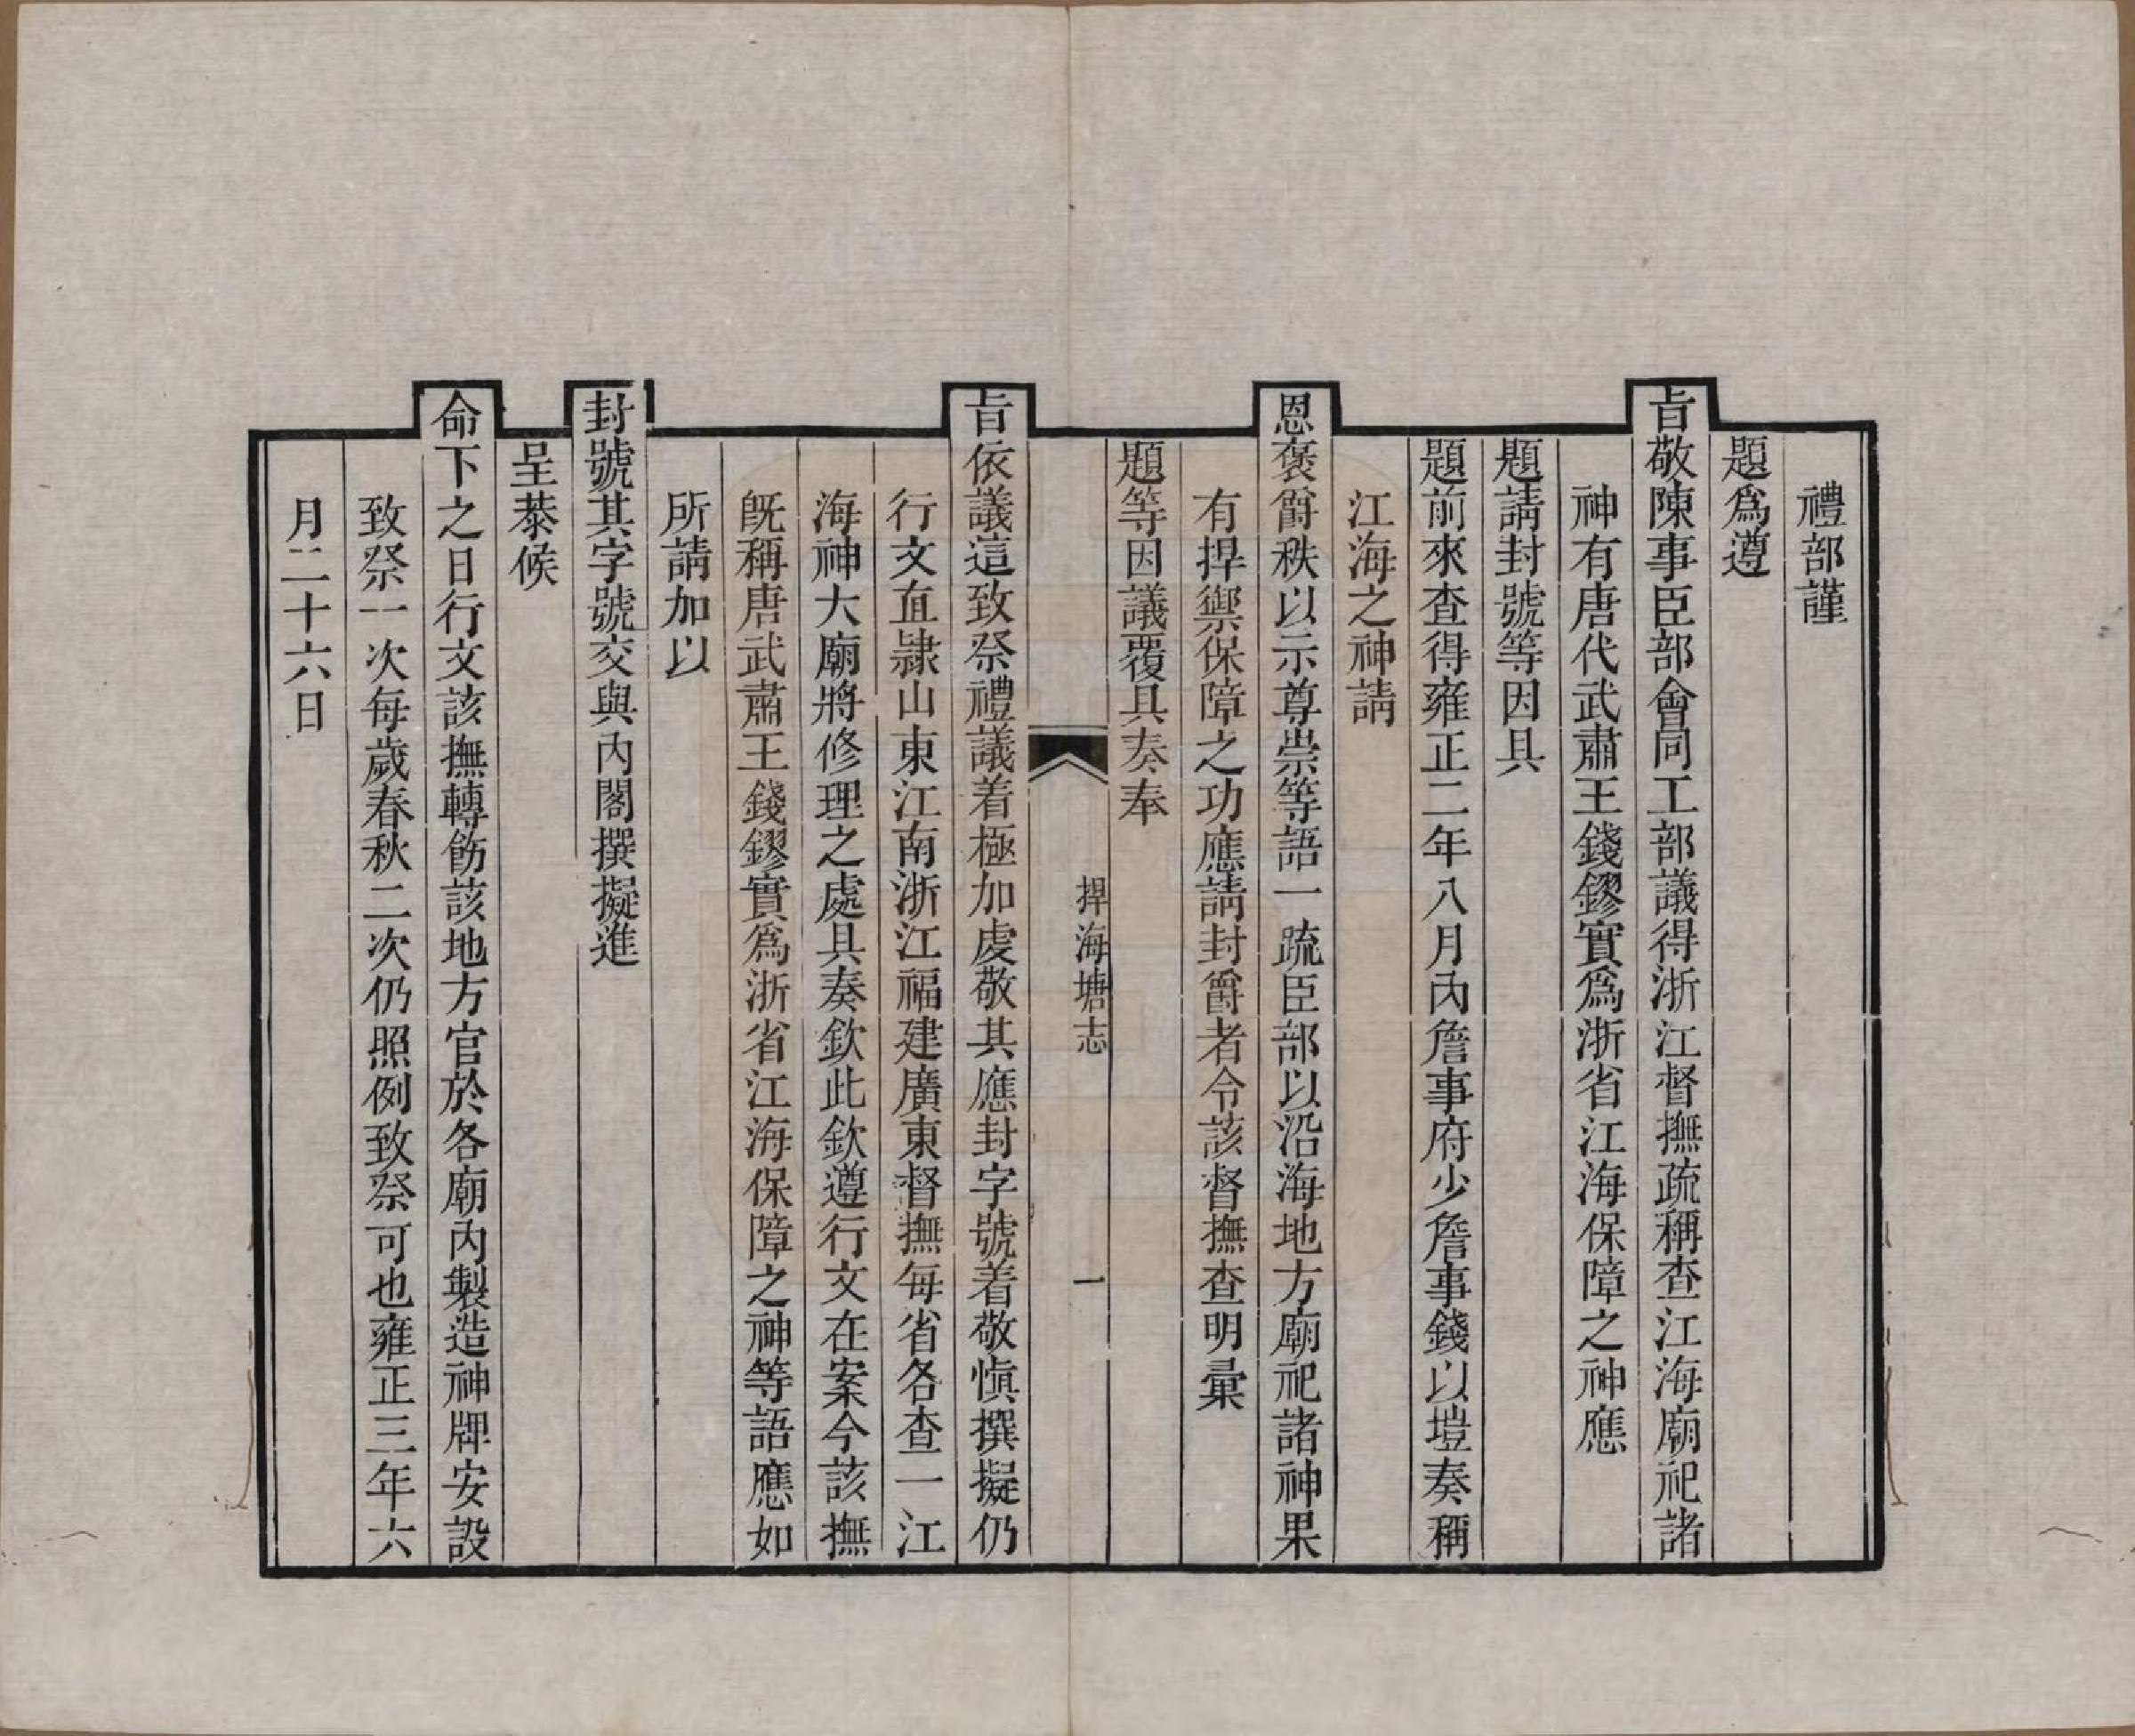 禮部謹
題爲遵
旨敬陳事臣部會同工部議得浙江督撫疏稱查江海廟祀諸
神有唐代武肅王錢鏐實爲浙省江海保障之神應
題請封號等因具
題前來查得雍正二年八月內詹事府少詹事錢以塏奏稱
江海之神請
恩褒爵秩以示尊崇等語一疏臣部以沿海地方廟祀諸神果
有捍禦保障之功應請封爵者令該督撫查明彙
題等因議覆具奏奉
捍海塘志
一
旨依議這致祭禮議着極加虔敬其應封字號着敬愼撰擬仍
行文直隷山東江南浙江福建廣東督撫每省各查一江
海神大廟將修理之處具奏欽此欽遵行文在案今該撫
旣稱唐武肅王錢鏐實爲浙省江海保障之神等語應如
所請加以
封號其字號交與內閣撰擬進
呈恭候
命下之日行文該撫轉飭該地方官於各廟內製造神牌安設
致祭一次每歲春秋二次仍照例致祭可也雍正三年六
月二十六日